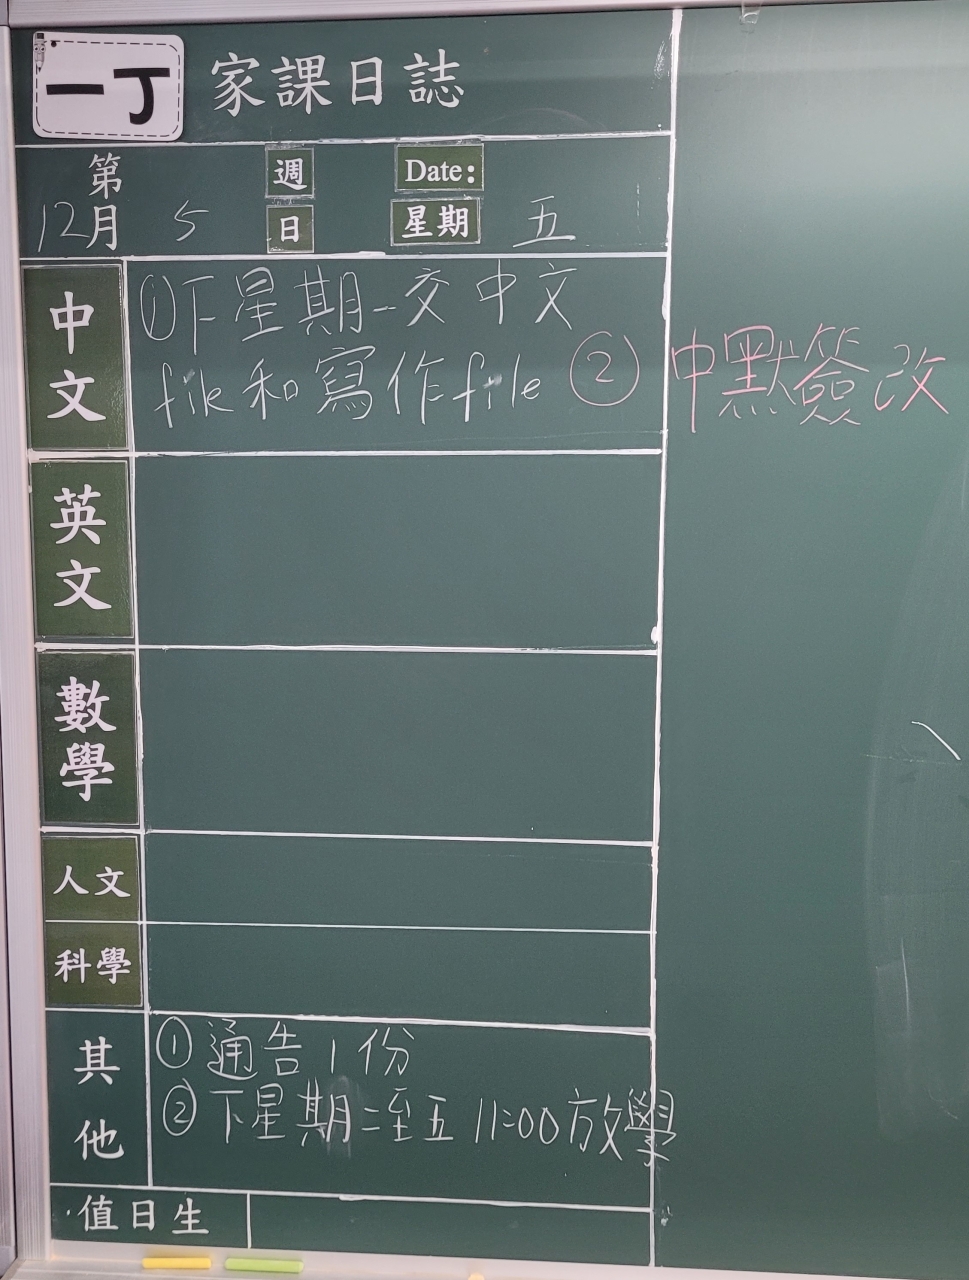 一丁 家課日誌
第 週 Date:
12月 5 日 星期 五
中文
①下星期一交中文
file和寫作file ②中默簽改
英文
數學
人文
科學
其他
①通告1份
②下星期二至五 11:00放學
值日生